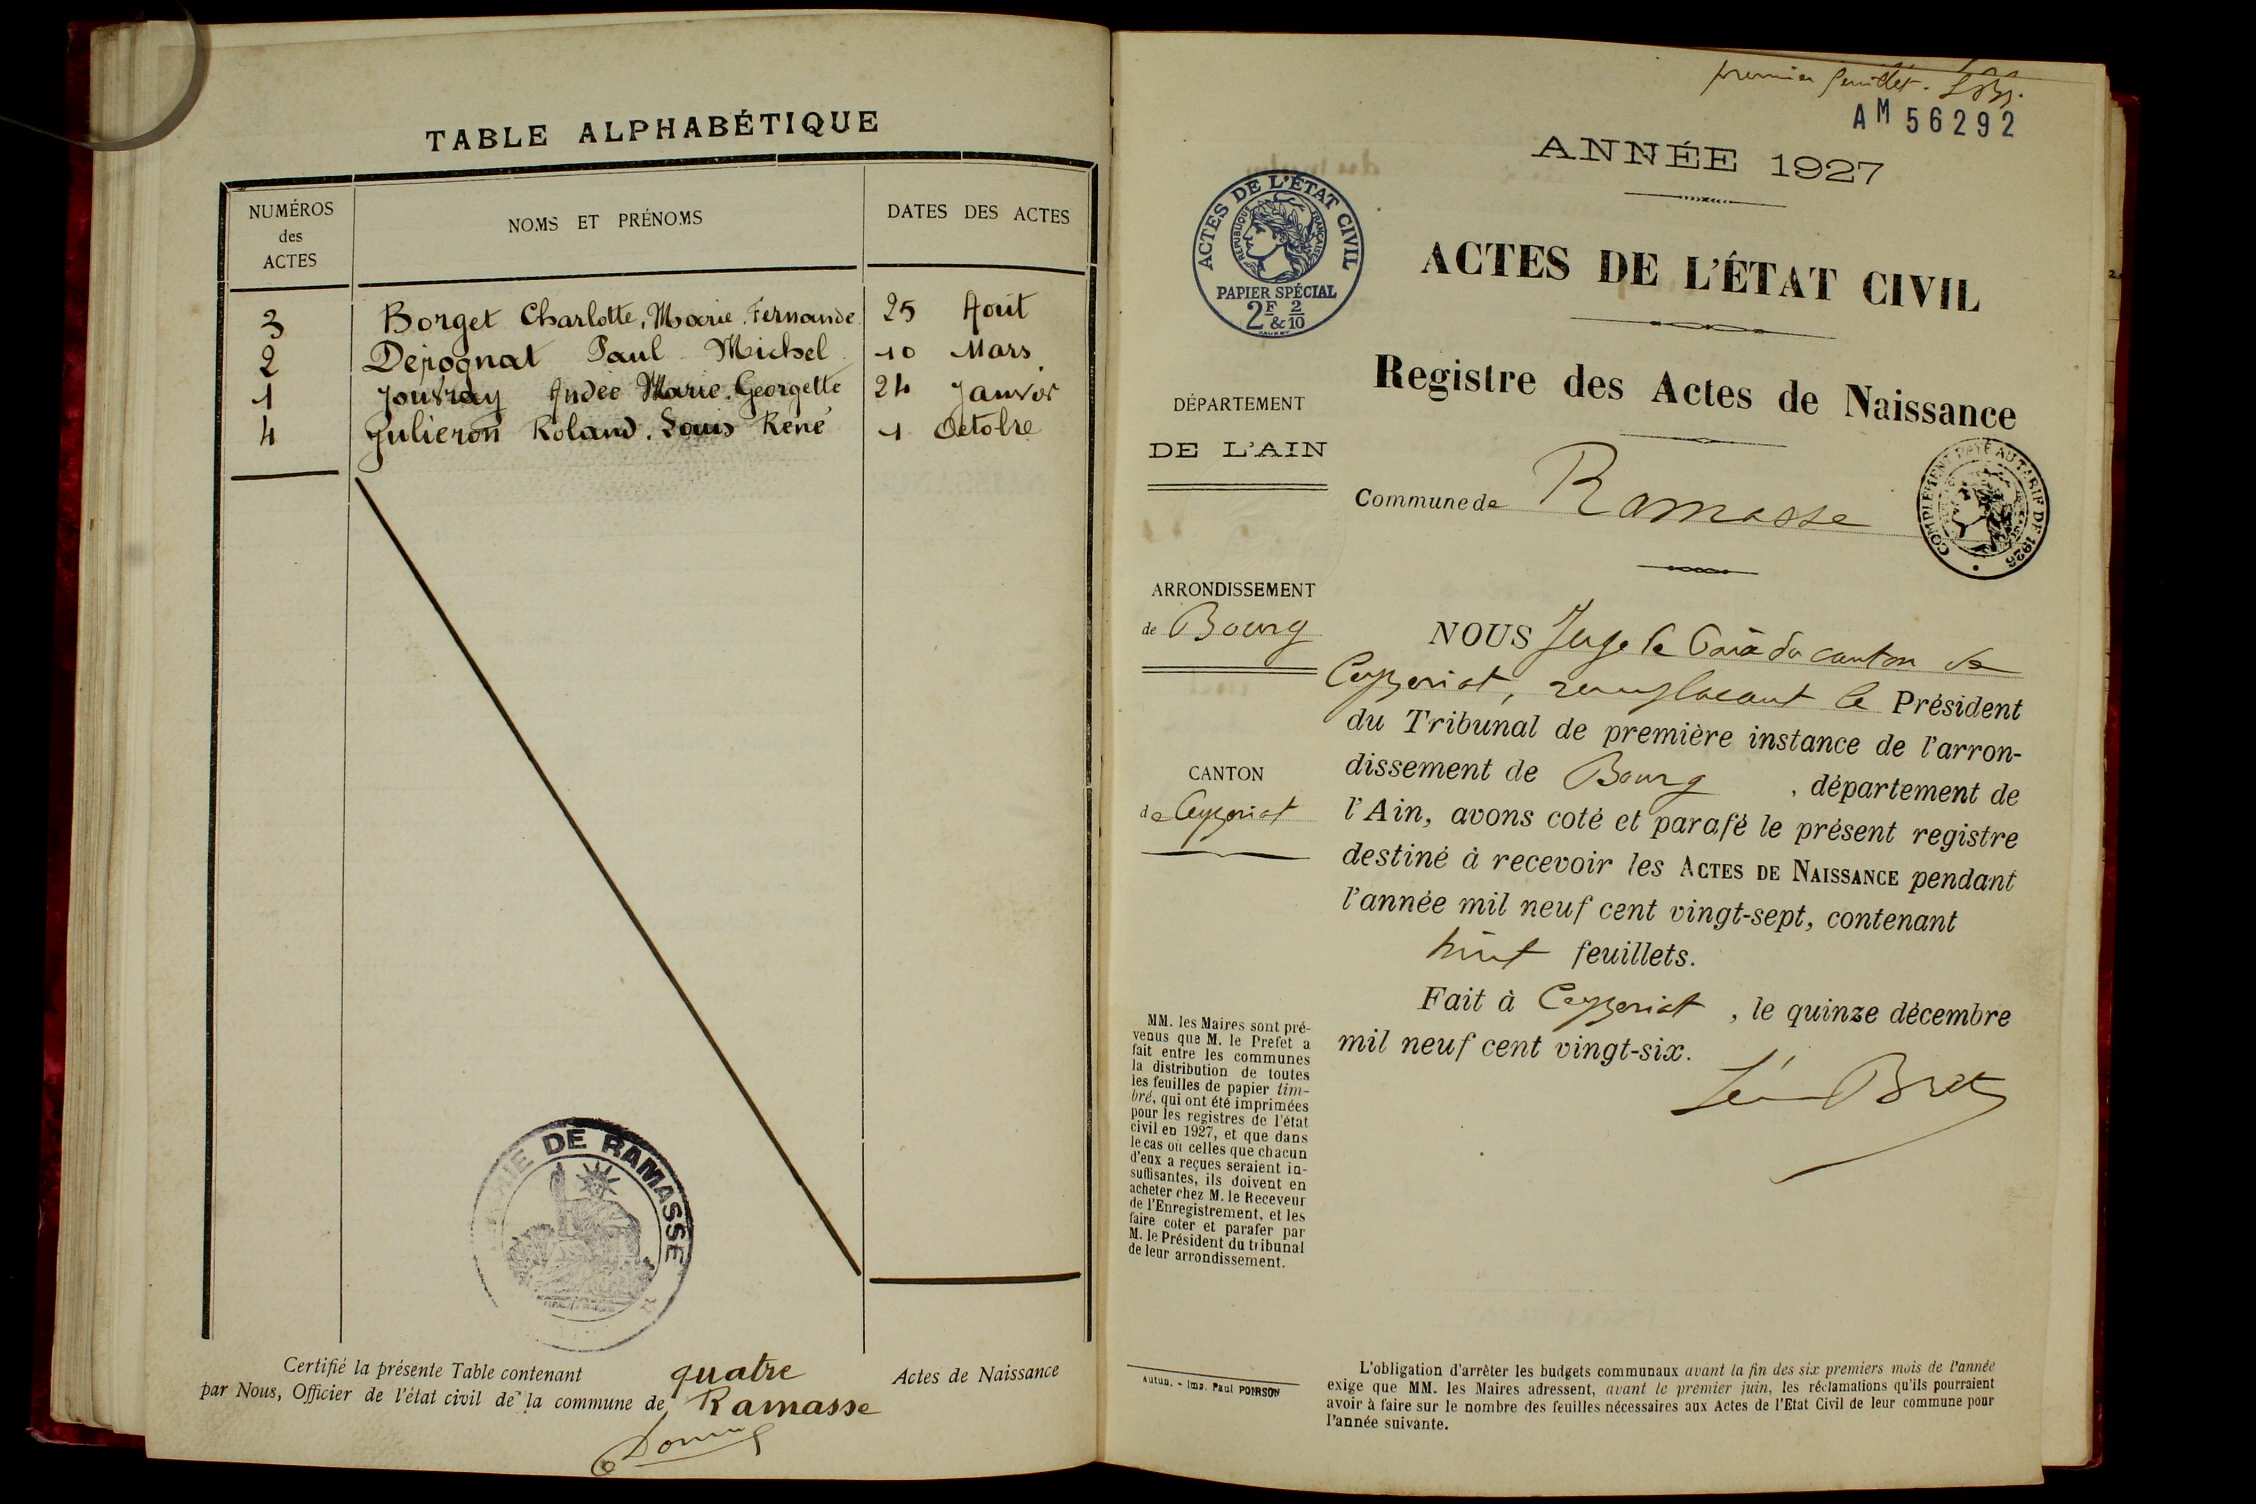 TABLE ALPHABÉTIQUE
NUMÉROS des ACTES
NOMS ET PRÉNOMS
DATES DES ACTES
3 Borget Charlotte, Marie Fernande 25 Août
2 Dépognat Paul Michel 10 Mars
1 Jouvray Andée Marie Georgette 24 Janvier
4 Julieron Roland, Louis René 1 Octobre
MAIRIE DE RAMASSE
Certifié la présente Table contenant quatre Actes de Naissance
par Nous, Officier de l'état civil de la commune de Ramasse
premier feuillet.
AM 56292
ANNÉE 1927
ACTES DE L'ÉTAT CIVIL
RÉPUBLIQUE FRANÇAISE
PAPIER SPÉCIAL
2F & 2/10
ACTES DE L'ÉTAT CIVIL
Registre des Actes de Naissance
DÉPARTEMENT
DE L'AIN
Commune de Ramasse
COMPLÉMENT PAYÉ AU TARIF DE 1926
ARRONDISSEMENT
de Bourg
CANTON
de Ceyzeriat
NOUS Juge de Paix du canton de
Ceyzeriat, remplacant le Président
du Tribunal de première instance de l'arron-
dissement de Bourg, département de
l'Ain, avons coté et parafé le présent registre
destiné à recevoir les ACTES DE NAISSANCE pendant
l'année mil neuf cent vingt-sept, contenant
huit feuillets.
Fait à Ceyzeriat, le quinze décembre
mil neuf cent vingt-six.
MM. les Maires sont pré-
venus que M. le Préfet a
fait entre les communes
la distribution de toutes
les feuilles de papier tim-
bré, qui ont été imprimées
pour les registres de l'état
civil en 1927, et que dans
le cas où celles que chacun
d'eux a reçues seraient in-
suffisantes, ils doivent en
acheter chez M. le Receveur
de l'Enregistrement, et les
faire coter et parafer par
M. le Président du tribunal
de leur arrondissement.
Autun. - Imp. Paul POIRSON
L'obligation d'arrêter les budgets communaux avant la fin des six premiers mois de l'année
exige que MM. les Maires adressent, avant le premier juin, les réclamations qu'ils pourraient
avoir à faire sur le nombre des feuilles nécessaires aux Actes de l'Etat Civil de leur commune pour
l'année suivante.